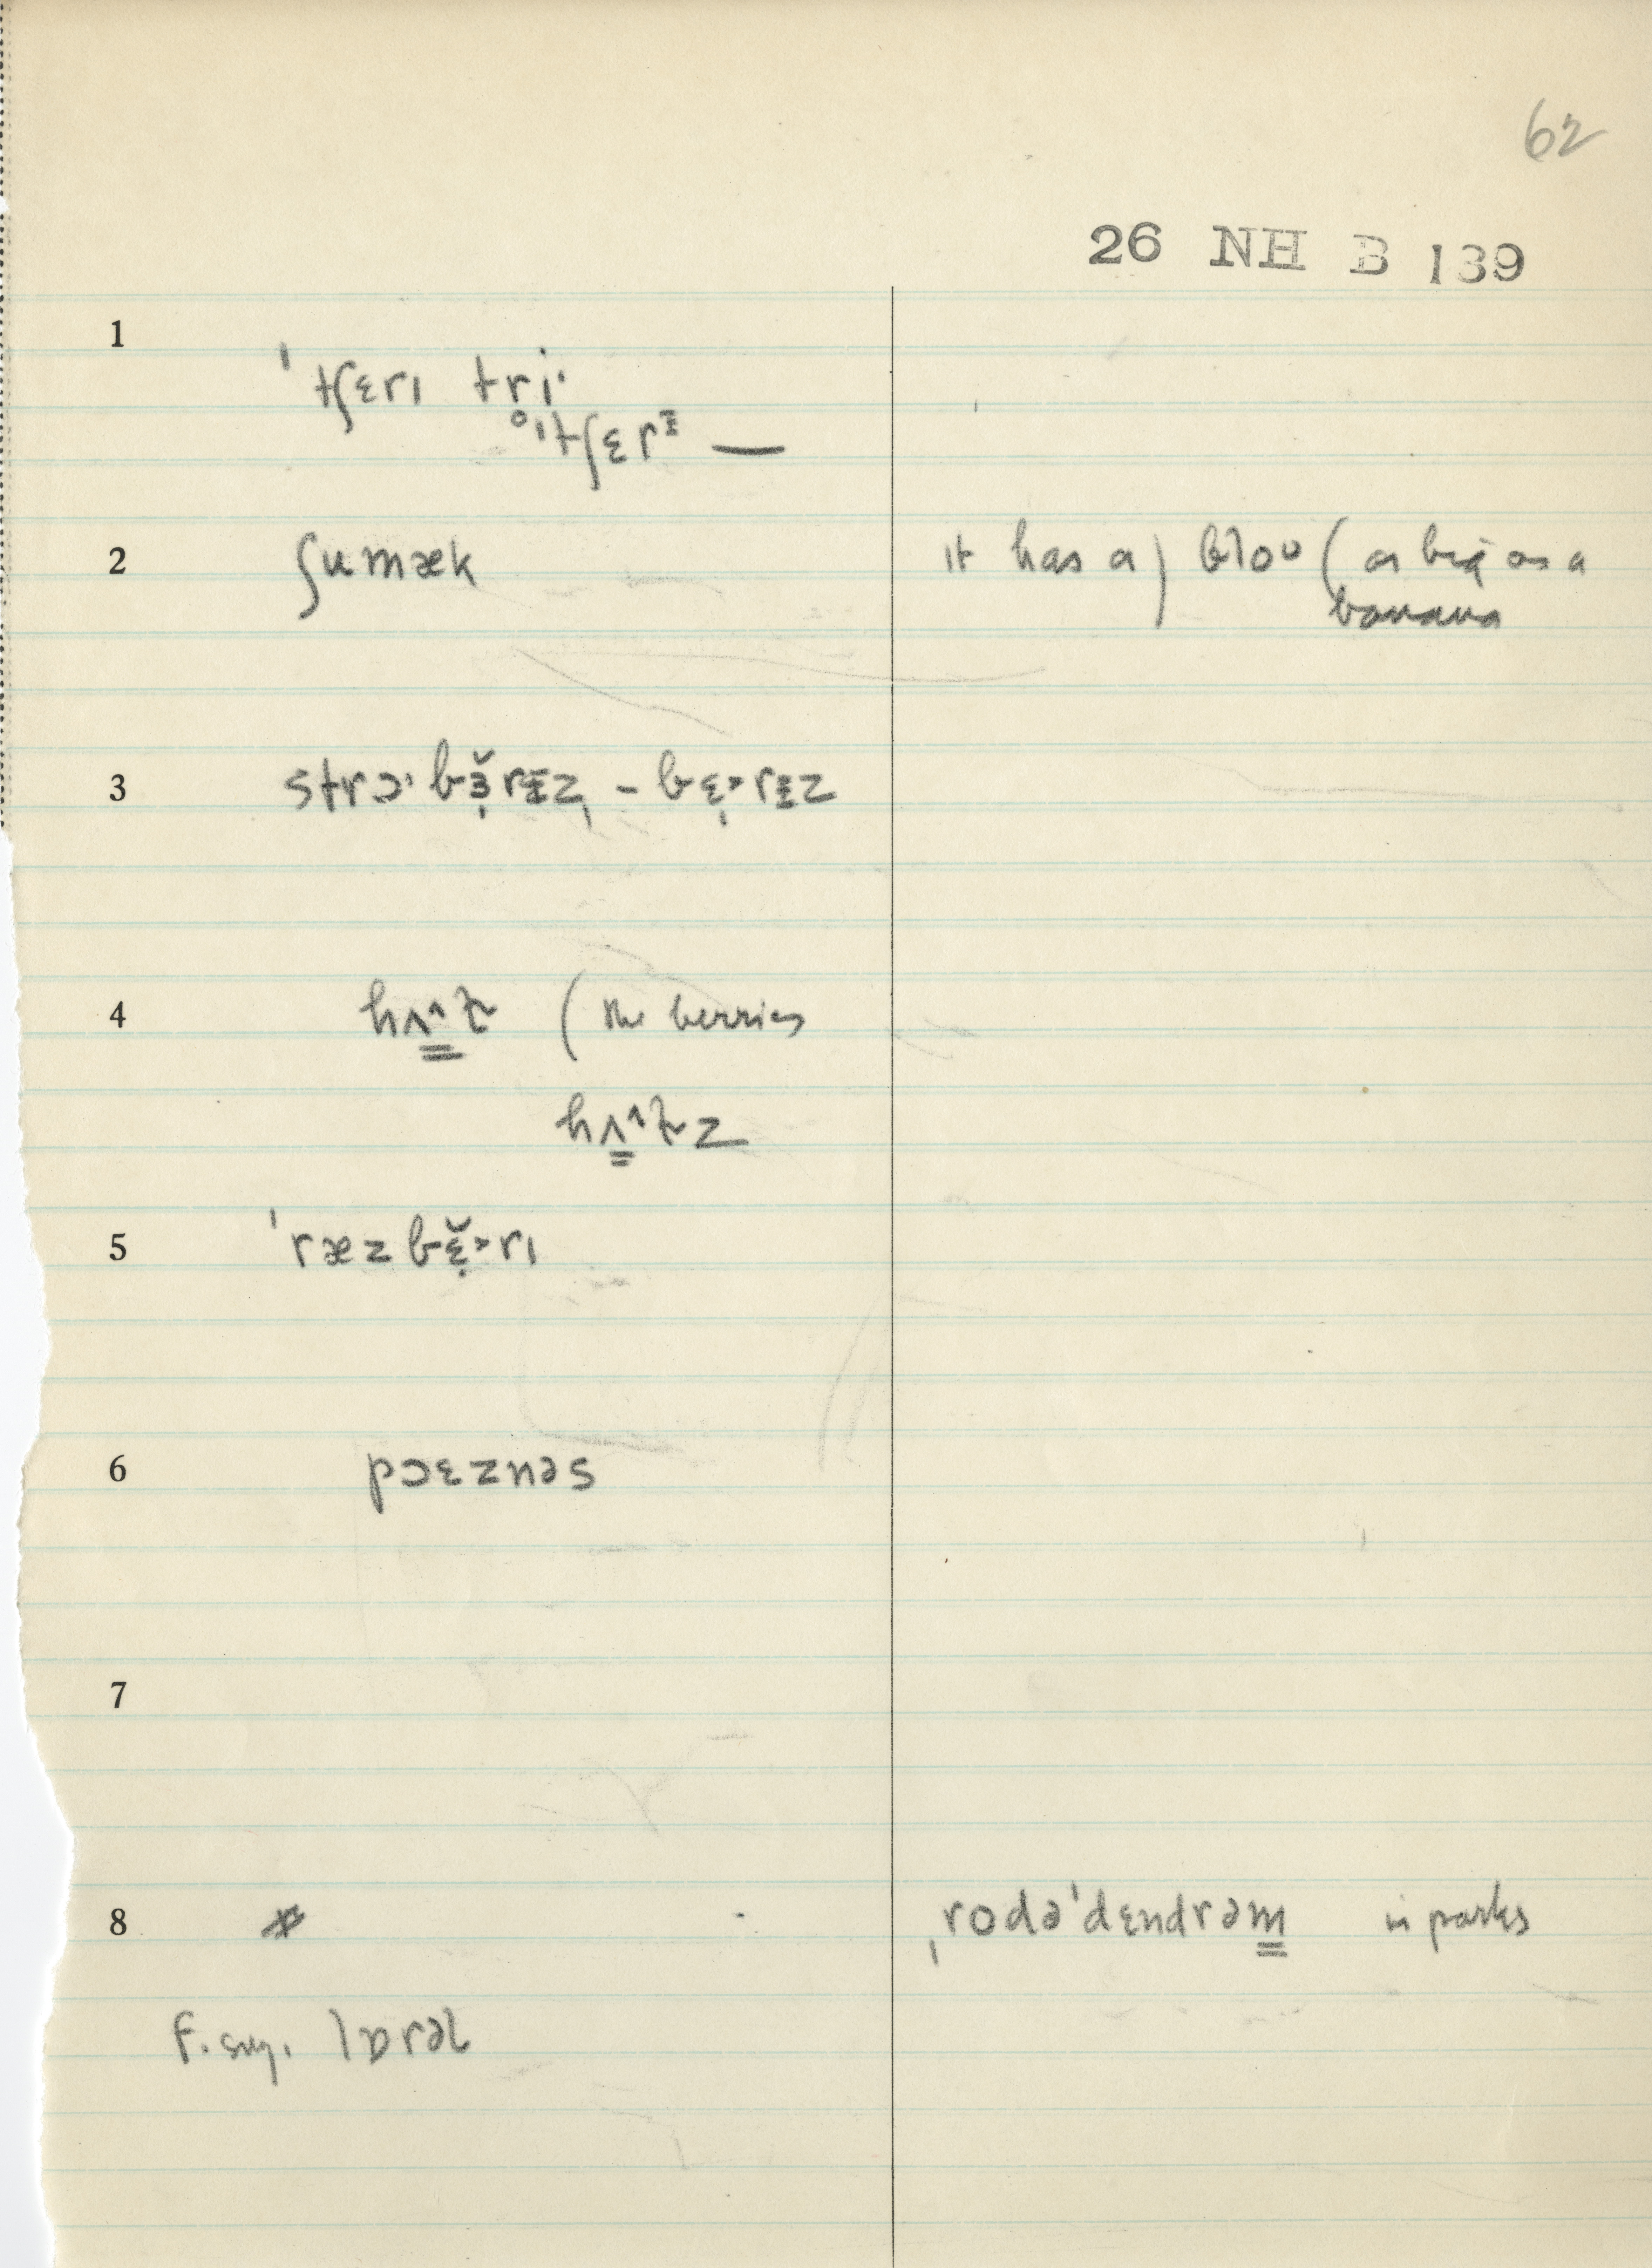 62
26 NH B 139
1
ˈtʃɛrɪ tri·
°ˈtʃɛrᵻ —
2 ʃumæk it has a) bloʊ (as big as a
banana
3 strɔ·bɛ̣̆rᵻz, - bɛ̣˃rᵻz
4 hʌ̳˄t̬ (the berries
hʌ̳˄t̬z
5 ˈræzbɛ̣̆˃rɪ
6 pɔɛznəs
7
8 * ˌrodəˈdɛndrəm̳ in parks
F. sug. lɒrəl